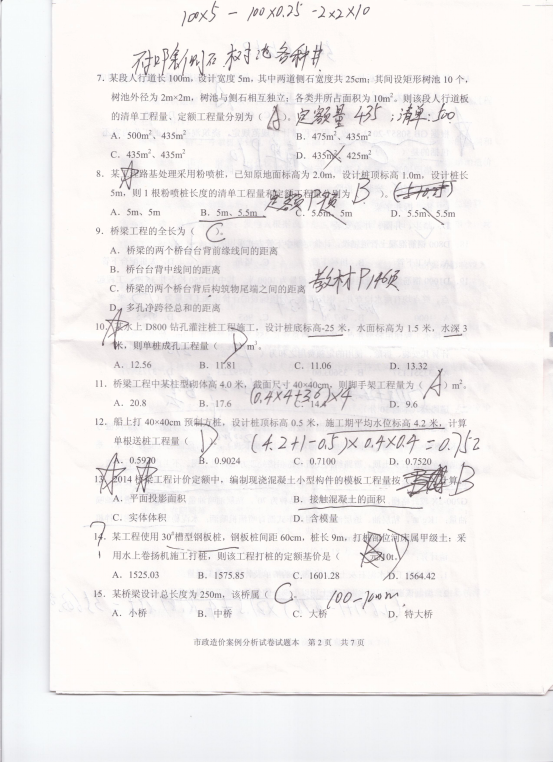 100×5 - 100×0.25 - 2×2×10
树池各种井
7. 某段人行道长 100m，设计宽度 5m，其中两道侧石宽度共 25cm；其间设矩形树池 10 个，
树池外径为 2m×2m，树池与侧石相互独立；各类井所占面积为 10m²，则该段人行道板
的清单工程量、定额工程量分别为（ A ）。定额量 435；清单：500
A．500m²，435m² B．475m²，435m²
C．435m²，435m² D．435m²，425m²
8．某 路基处理采用粉喷桩，已知原地面标高为 2.0m，设计桩顶标高 1.0m，设计桩长
5m，则 1 根粉喷桩长度的清单工程量和 为（ B ）。
A．5m、5m B．5m、5.5m C．5.5m、5m D．5.5m、5.5m
9．桥梁工程的全长为（ C ）。
A．桥梁的两个桥台台背前缘线间的距离
B．桥台台背中线间的距离
C．桥梁的两个桥台背后构筑物尾端之间的距离 教材P146页
D．多孔净跨径总和的距离
10．某水上 D800 钻孔灌注桩工程施工，设计桩底标高-25 米，水面标高为 1.5 米，水深 3
米，则单桩成孔工程量（ D ）m³。
A．12.56 B．11.81 C．11.06 D．13.32
11．桥梁工程中某柱型砌体高 4.0 米，截面尺寸 40×40cm，则脚手架工程量为（ A ）m²。
(0.4×4+3.6)×4
A．20.8 B．17.6 C．14.4 D．9.6
12．船上打 40×40cm 预制方桩，设计桩顶标高 0.5 米，施工期平均水位标高 4.2 米，计算
单根送桩工程量（ D (4.2+1-0.5)×0.4×0.4=0.752
A．0.5920 B．0.9024 C．0.7100 D．0.7520
13．2014 桥梁工程计价定额中，编制现浇混凝土小型构件的模板工程量按 算 B
A．平面投影面积 B．接触混凝土的面积
C．实体体积 D．含模量
?
14．某工程使用 30#槽型钢板桩，钢板桩间距 60cm，桩长 9m，打桩部位河床属甲级土；采
用水上卷扬机施工打桩，则该工程打桩的定额基价是（ D 元/10t。
A．1525.03 B．1575.85 C．1601.28 D．1564.42
15．某桥梁设计总长度为 250m，该桥属（ C
A．小桥 B．中桥 C．大桥 D．特大桥
市政造价案例分析试卷试题本 第 2 页 共 7 页